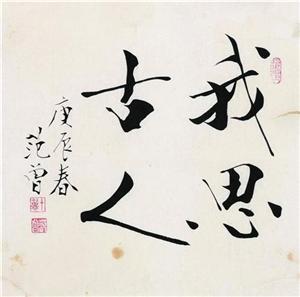 我思
古人
庚辰春
范曾